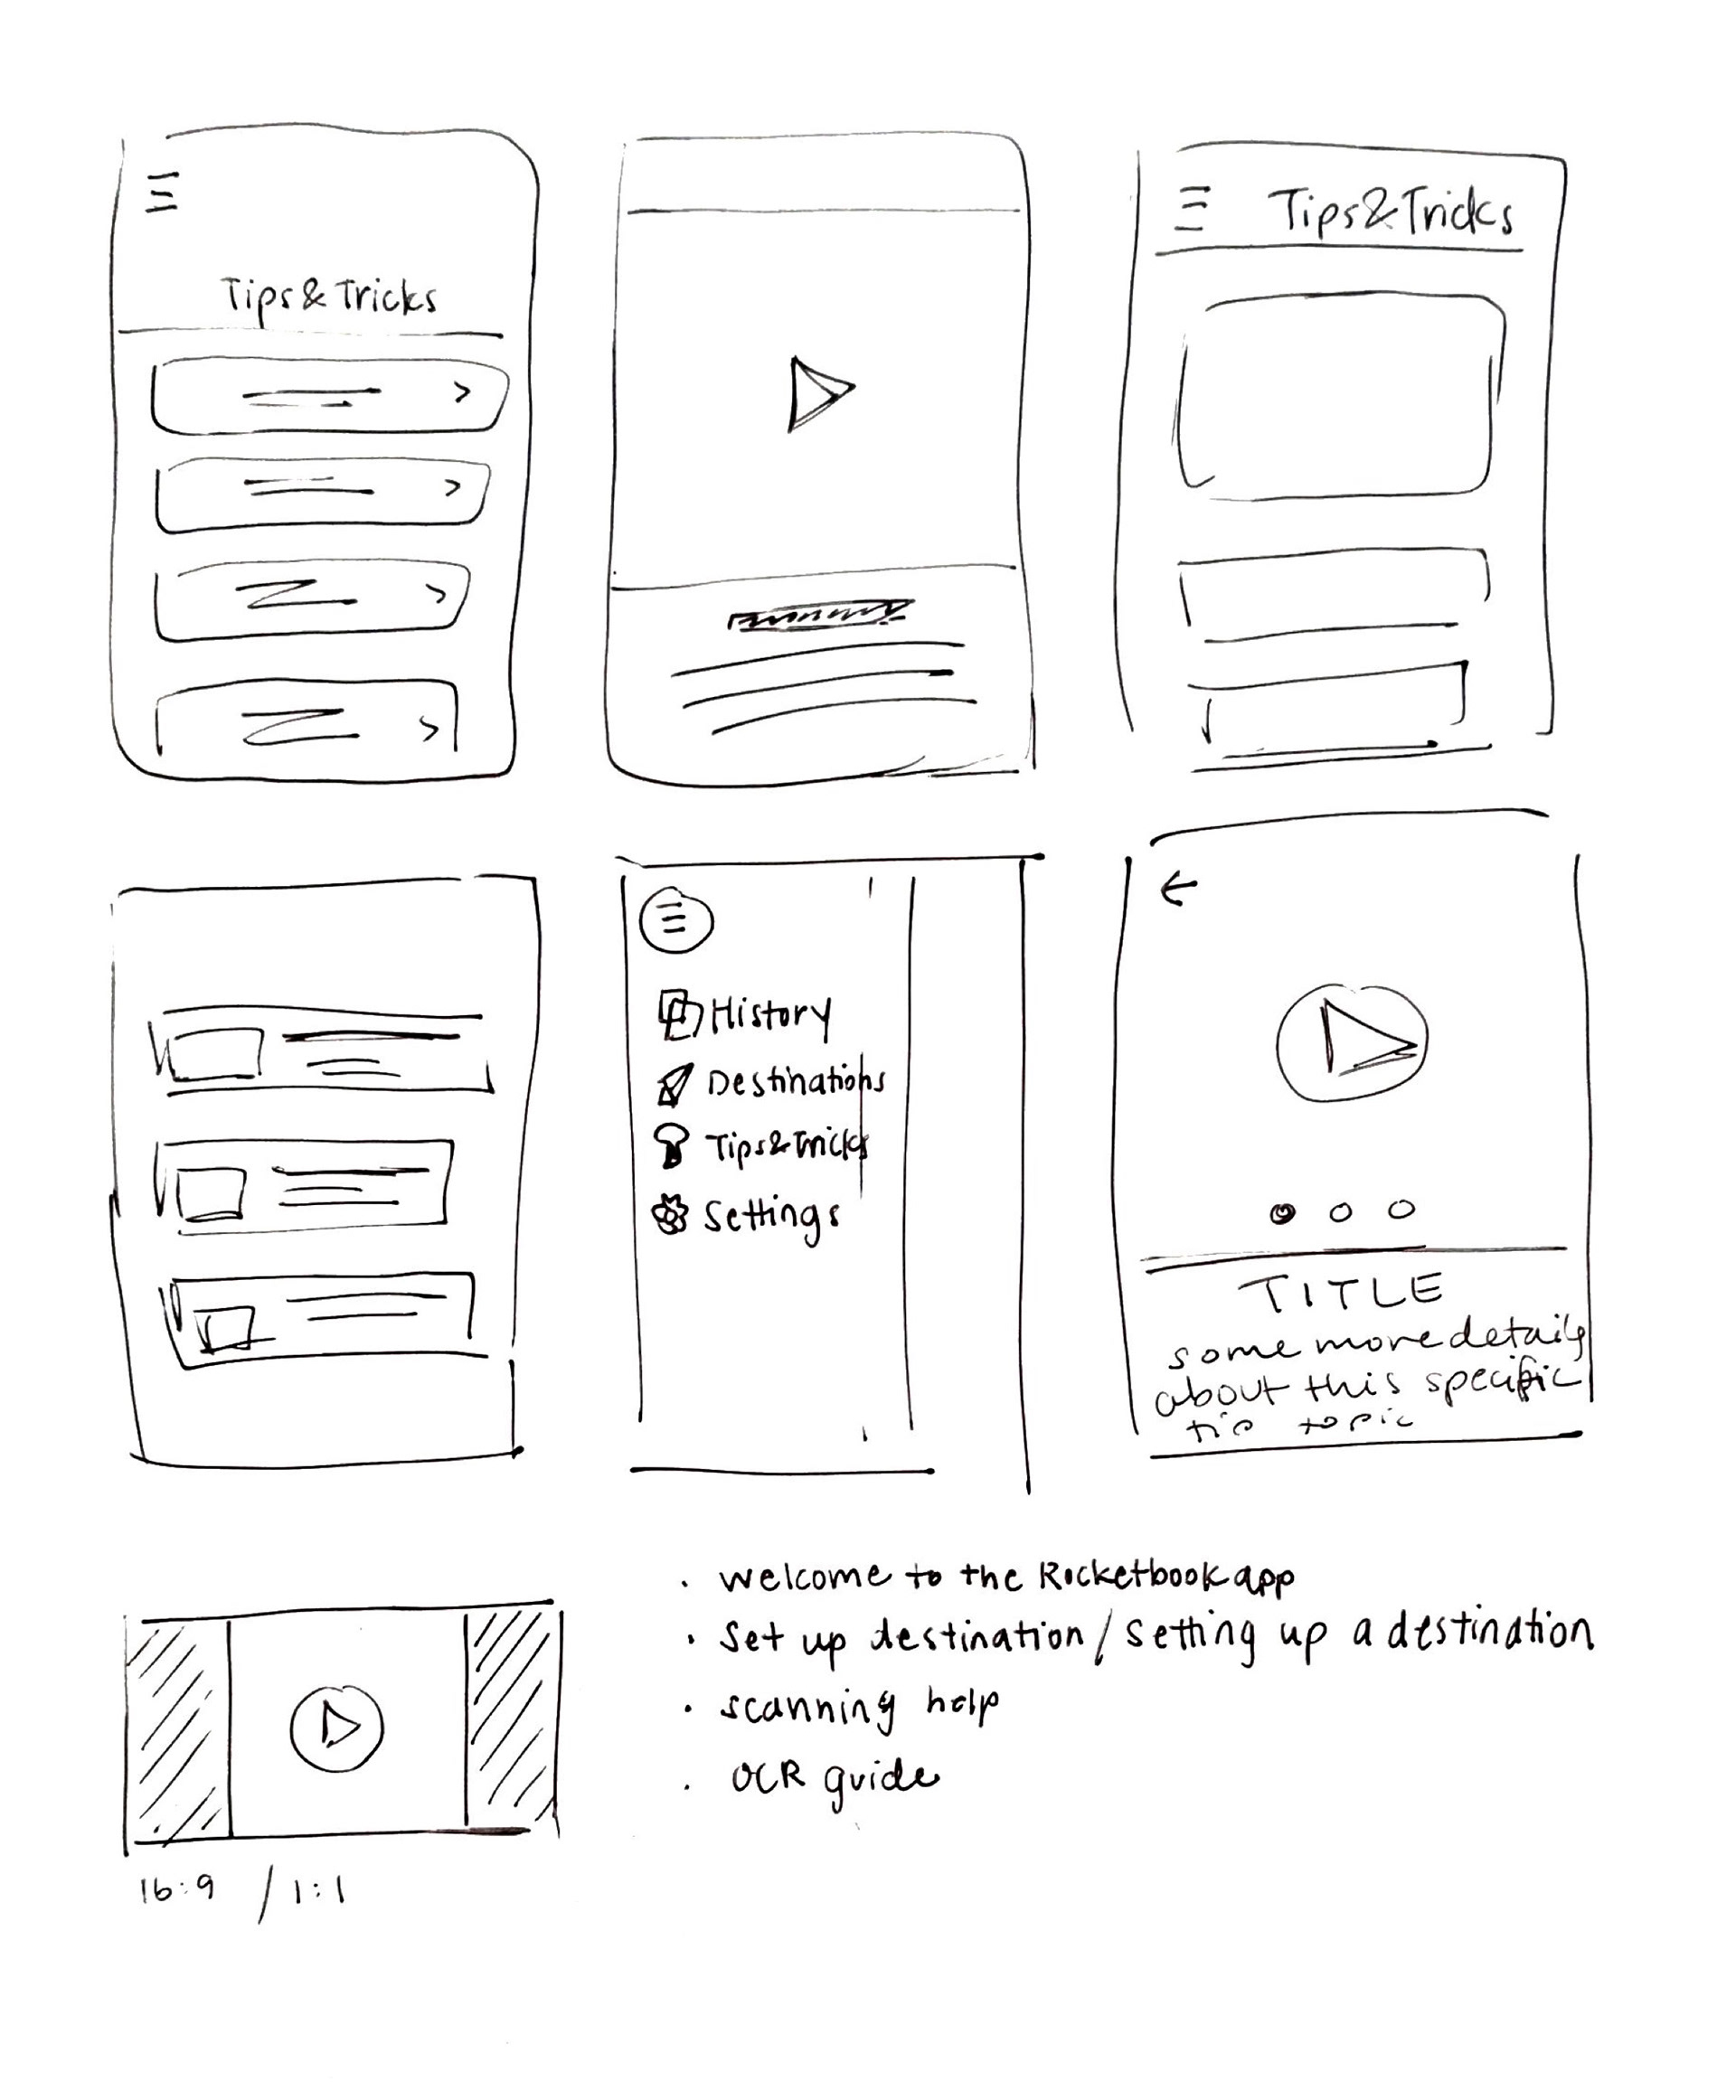 Tips & Tricks
Tips & Tricks
History
Destinations
Tips & Tricks
Settings
TITLE
some more details
about this specific
tip topic
• welcome to the Rocketbook app
• Set up destination / Setting up a destination
• scanning help
• OCR guide
16:9 / 1:1